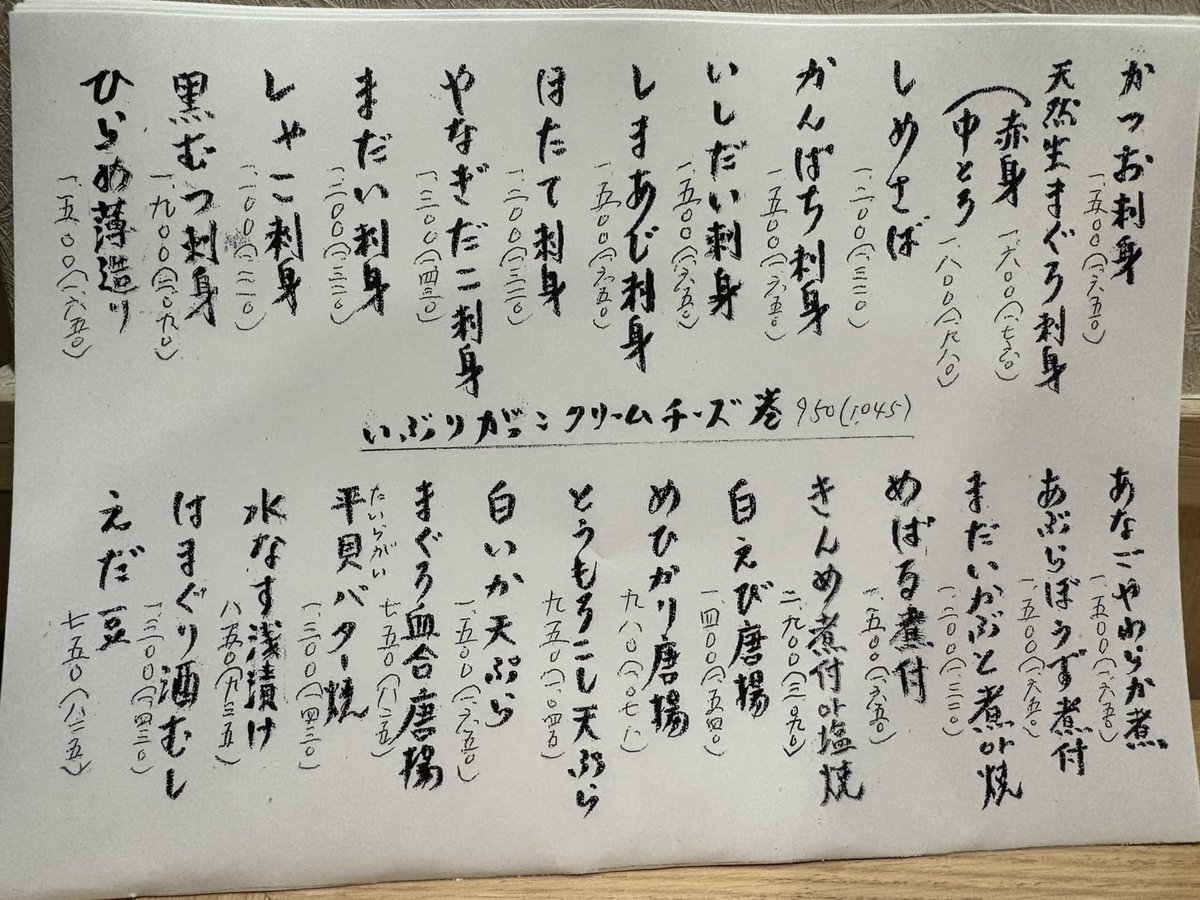 かつお刺身
一、五〇〇(一、六五〇)
天然生まぐろ刺身
赤身
一、六〇〇(一、七六〇)
中とろ
一、八〇〇(一、九八〇)
しめさば
一、二〇〇(一、三二〇)
かんぱち刺身
一、五〇〇(一、六五〇)
いしだい刺身
一、五〇〇(一、六五〇)
しまあじ刺身
一、五〇〇(一、六五〇)
ほたて刺身
一、二〇〇(一、三二〇)
やなぎだこ刺身
一、三〇〇(一、四三〇)
まだい刺身
一、二〇〇(一、三二〇)
しゃこ刺身
一、一〇〇(一、二一〇)
黒むつ刺身
一、九〇〇(二、〇九〇)
ひらめ薄造り
一、五〇〇(一、六五〇)
いぶりがっこクリームチーズ巻 950(1,045)
あなごやわらか煮
一、五〇〇(一、六五〇)
あぶらぼうず煮付
一、五〇〇(一、六五〇)
まだいかぶと煮or焼
一、二〇〇(一、三二〇)
めばる煮付
一、五〇〇(一、六五〇)
きんめ煮付or塩焼
二、九〇〇(三、一九〇)
白えび唐揚
一、四〇〇(一、五四〇)
めひかり唐揚
九八〇(一、〇七八)
とうもろこし天ぷら
九五〇(一、〇四五)
白いか天ぷら
一、五〇〇(一、六五〇)
まぐろ血合唐揚
七五〇(八二五)
たいらがい
平貝バター焼
一、三〇〇(一、四三〇)
水なす浅漬け
八五〇(九三五)
はまぐり酒むし
一、三〇〇(一、四三〇)
えだ豆
七五〇(八二五)